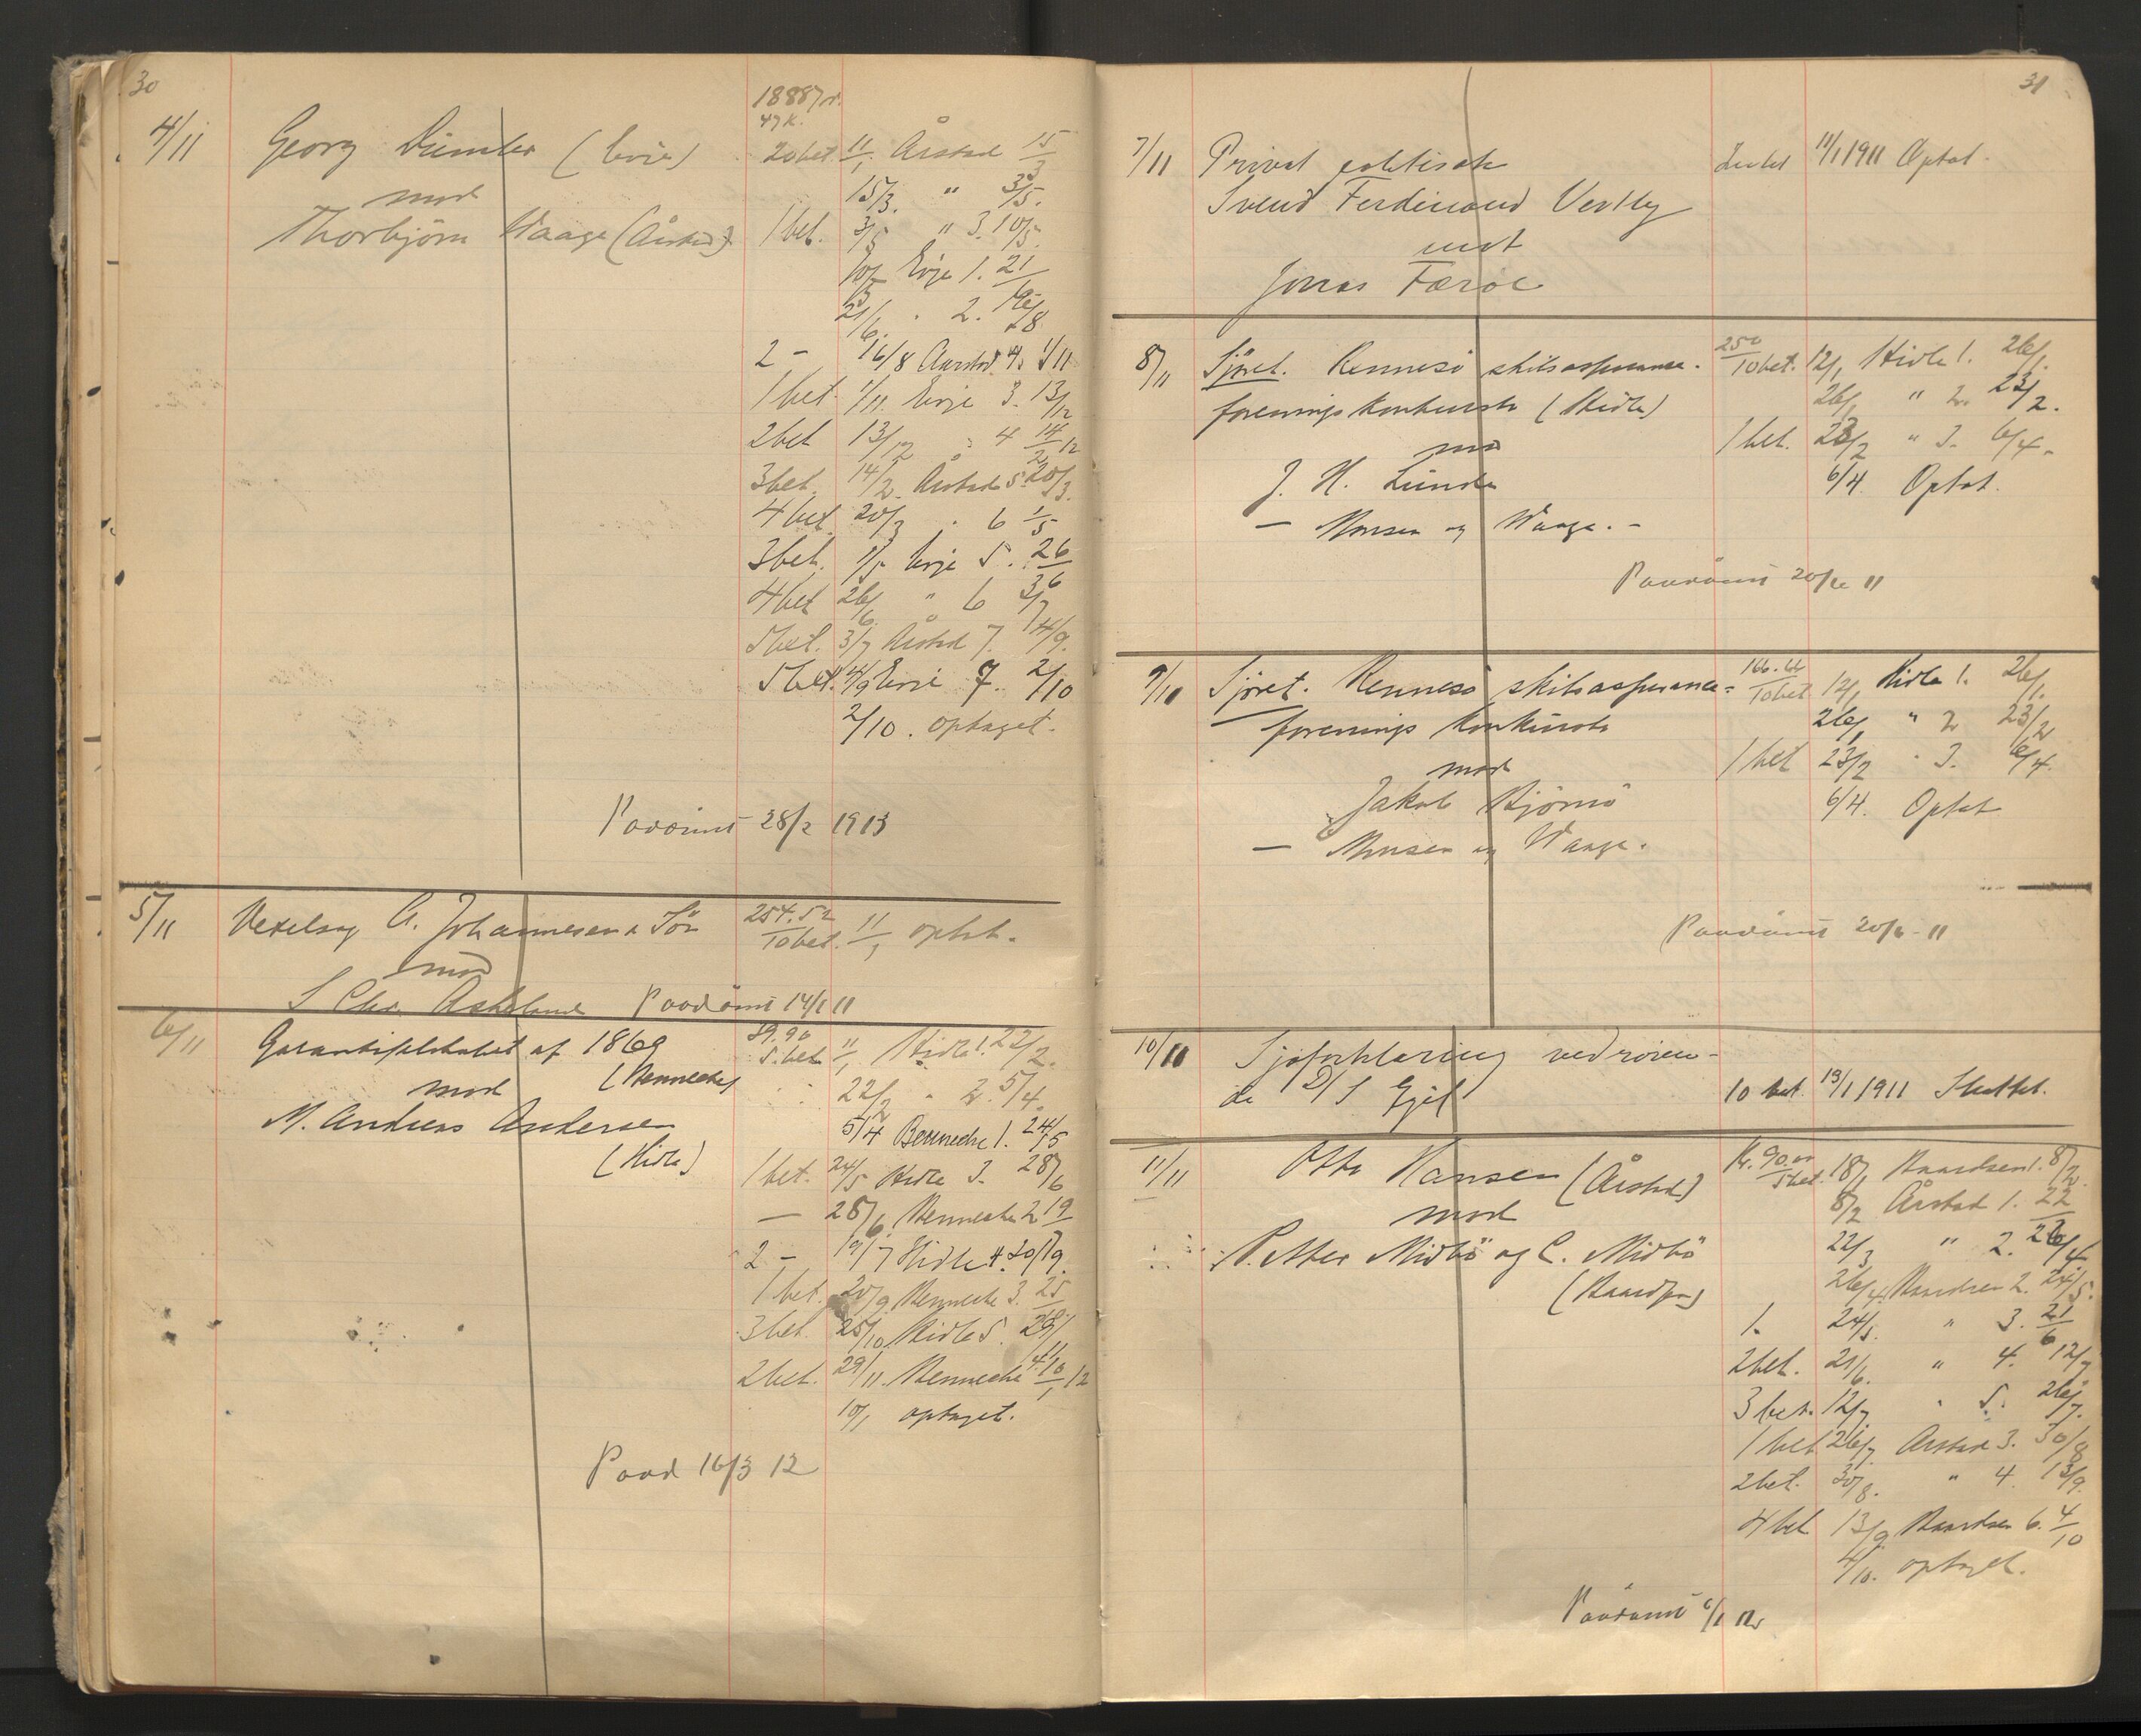 30
18887 n.
47 K.
4/11 Georg (Evje) 20 bet 11/1 Årstad 15/3
mod 15/3. " 3/5.
Thorbjørn Waage (Årstad) 1 bet. 3/5 " 3. 10/5.
10/5 Evje 1. 21/6
21/6. " 2. 16/8
2 - 16/8 Aarstad 4. 1/11
1 bet. 1/11. Evje 3. 13/12
2 bet 13/12 " 4 14/2 12
3 bet. 14/2. Årstad 5. 20/3.
4 bet 20/3 " 6 1/5
3 bet. 1/5 Evje 5. 26/6
4 bet 26/6. " 6 3/7
5 bet. 3/7 Årstad 7. 4/9.
5 bet. 4/9 Evje 7. 2/10
2/10. optaget.
Paadömt 28/2 1913
5/11 Vexelsag A. Johannesen & Sön 254.52 10 bet. 11/1 optat.
mod
S Chr. Askeland Paadömt 14/1 11
6/11 Garantiselskabet af 1869 89.90 5. bet 11/1 Hidle 1. 22/2.
mod (Benneche) 22/2 " 2. 5/4.
M. Andreas Andersen 5/4 Benneche 1. 24/5
(Hidle) 1 bet. 24/5 Hidle 3. 28/6
— 28/6 Benneche 2 19/7
2 - 19/7 Hidle 4. 20/9.
1 bet. 20/9. Benneche 3. 25/10
3 bet. 25/10 Hidle 5. 29/11
2 bet. 29/11. Benneche 4. 10/1 12
10/1 optaget.
Paad 16/3 12
31
7/11 Privat politisak 11/1 1911 Optat.
Svend Ferdinand Vestly
mot
Jonas Færøe
8/11 Sjöret. Rennesö skibsassurance- 250 10 bet. 12/1 Hidle 1. 26/1.
forenings konkursbo (Hidle) 26/1 " 2. 23/2.
mod 1 bet. 23/2 " 3. 6/4.
J. H. Lunde 6/4. Optat.
— Monsen og Waage. -
Paadömt 20/6 11
9/10 Sjöret. Rennesö skibsassurance- 10 bet 12/1 Hidle 1. 26/1.
forenings konkursbo 26/1 " 2 23/2
mod 1 bet 23/2 " 3. 6/4.
Jakob Bjørnö 6/4. Optat
— Monsen og Waage.
Paadömt 20/6 - 11
10/11 Sjøforklaring vedrøren-
de D/S Egil 10 bet. 13/1 1911 Sluttet.
11/11 Otto Hansen (Årstad) Kr. 90.00 5 bet. 18/1 Baardsen 1. 8/2.
mod 8/2 Årstad 1. 22/3
P. Mitbö og C. Mitbö 22/3 " 2. 26/4
(Baardsen) 26/4. Baardsen 2. 24/5.
1. 24/5. " 3. 21/6
2 bet. 21/6. " 4. 12/7
3 bet. 12/7 " 5. 26/7.
1 bet 26/7 Årstad 3. 30/8
2 bet. 30/8. " 4. 13/9.
4 bet 13/9 Baardsen 6. 4/10
4/10. optaget.
Paadömt 6/1 12